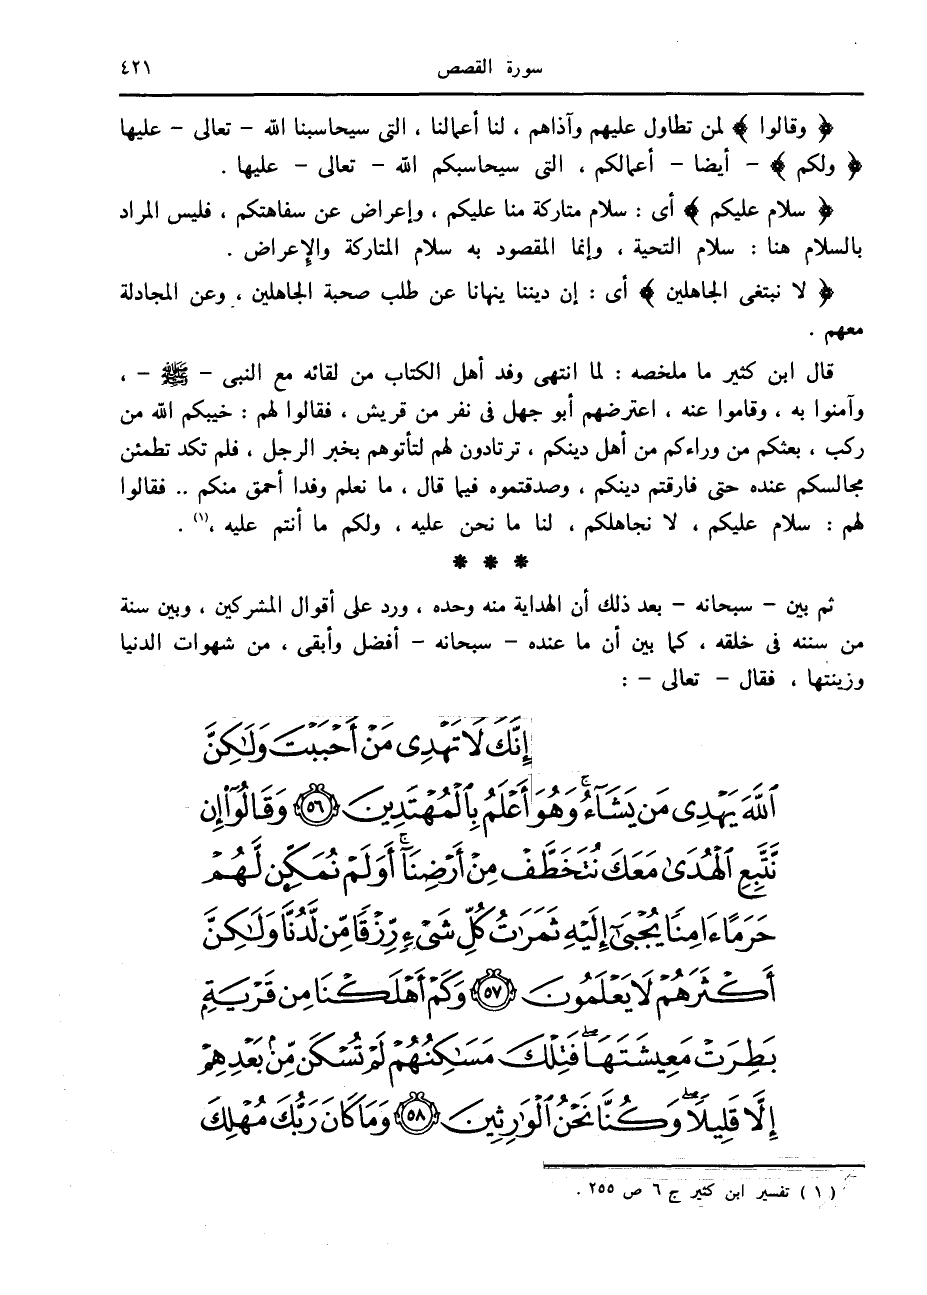 سورة القصص
٤٢١
﴿ وقالوا ﴾ لمن تطاول عليهم وآذاهم ، لنا أعمالنا ، التى سيحاسبنا الله – تعالى – عليها
﴿ ولكم ﴾ – أيضا – أعمالكم ، التى سيحاسبكم الله – تعالى – عليها .
﴿ سلام عليكم ﴾ أى : سلام متاركة منا عليكم ، وإعراض عن سفاهتكم ، فليس المراد
بالسلام هنا : سلام التحية ، وإنما المقصود به سلام المتاركة والإعراض .
﴿ لا نبتغى الجاهلين ﴾ أى : إن ديننا ينهانا عن طلب صحبة الجاهلين ، وعن المجادلة
معهم .
قال ابن كثير ما ملخصه : لما انتهى وفد أهل الكتاب من لقائه مع النبى – ﷺ – ،
وآمنوا به ، وقاموا عنه ، اعترضهم أبو جهل فى نفر من قريش ، فقالوا لهم : خيبكم الله من
ركب ، بعثكم من وراءكم من أهل دينكم ، ترتادون لهم لتأتوهم بخبر الرجل ، فلم تكد تطمئن
مجالسكم عنده حتى فارقتم دينكم ، وصدقتموه فيما قال ، ما نعلم وفدا أحمق منكم .. فقالوا
لهم : سلام عليكم ، لا نجاهلكم ، لنا ما نحن عليه ، ولكم ما أنتم عليه ،(١) .
* * *
ثم بين – سبحانه – بعد ذلك أن الهداية منه وحده ، ورد على أقوال المشركين ، وبين سنة
من سننه فى خلقه ، كما بين أن ما عنده – سبحانه – أفضل وأبقى ، من شهوات الدنيا
وزينتها ، فقال – تعالى – :
إِنَّكَ لَا تَهْدِى مَنْ أَحْبَبْتَ وَلَٰكِنَّ
ٱللَّهَ يَهْدِى مَن يَشَآءُ ۚ وَهُوَ أَعْلَمُ بِٱلْمُهْتَدِينَ ٥٦ وَقَالُوٓا۟ إِن
نَّتَّبِعِ ٱلْهُدَىٰ مَعَكَ نُتَخَطَّفْ مِنْ أَرْضِنَآ ۚ أَوَلَمْ نُمَكِّن لَّهُمْ
حَرَمًا ءَامِنًا يُجْبَىٰٓ إِلَيْهِ ثَمَرَٰتُ كُلِّ شَىْءٍ رِّزْقًا مِّن لَّدُنَّا وَلَٰكِنَّ
أَكْثَرَهُمْ لَا يَعْلَمُونَ ٥٧ وَكَمْ أَهْلَكْنَا مِن قَرْيَةٍ
بَطِرَتْ مَعِيشَتَهَا ۖ فَتِلْكَ مَسَٰكِنُهُمْ لَمْ تُسْكَن مِّنۢ بَعْدِهِمْ
إِلَّا قَلِيلًا ۖ وَكُنَّا نَحْنُ ٱلْوَٰرِثِينَ ٥٨ وَمَا كَانَ رَبُّكَ مُهْلِكَ
( ١ ) تفسير ابن كثير ج ٦ ص ٢٥٥ .